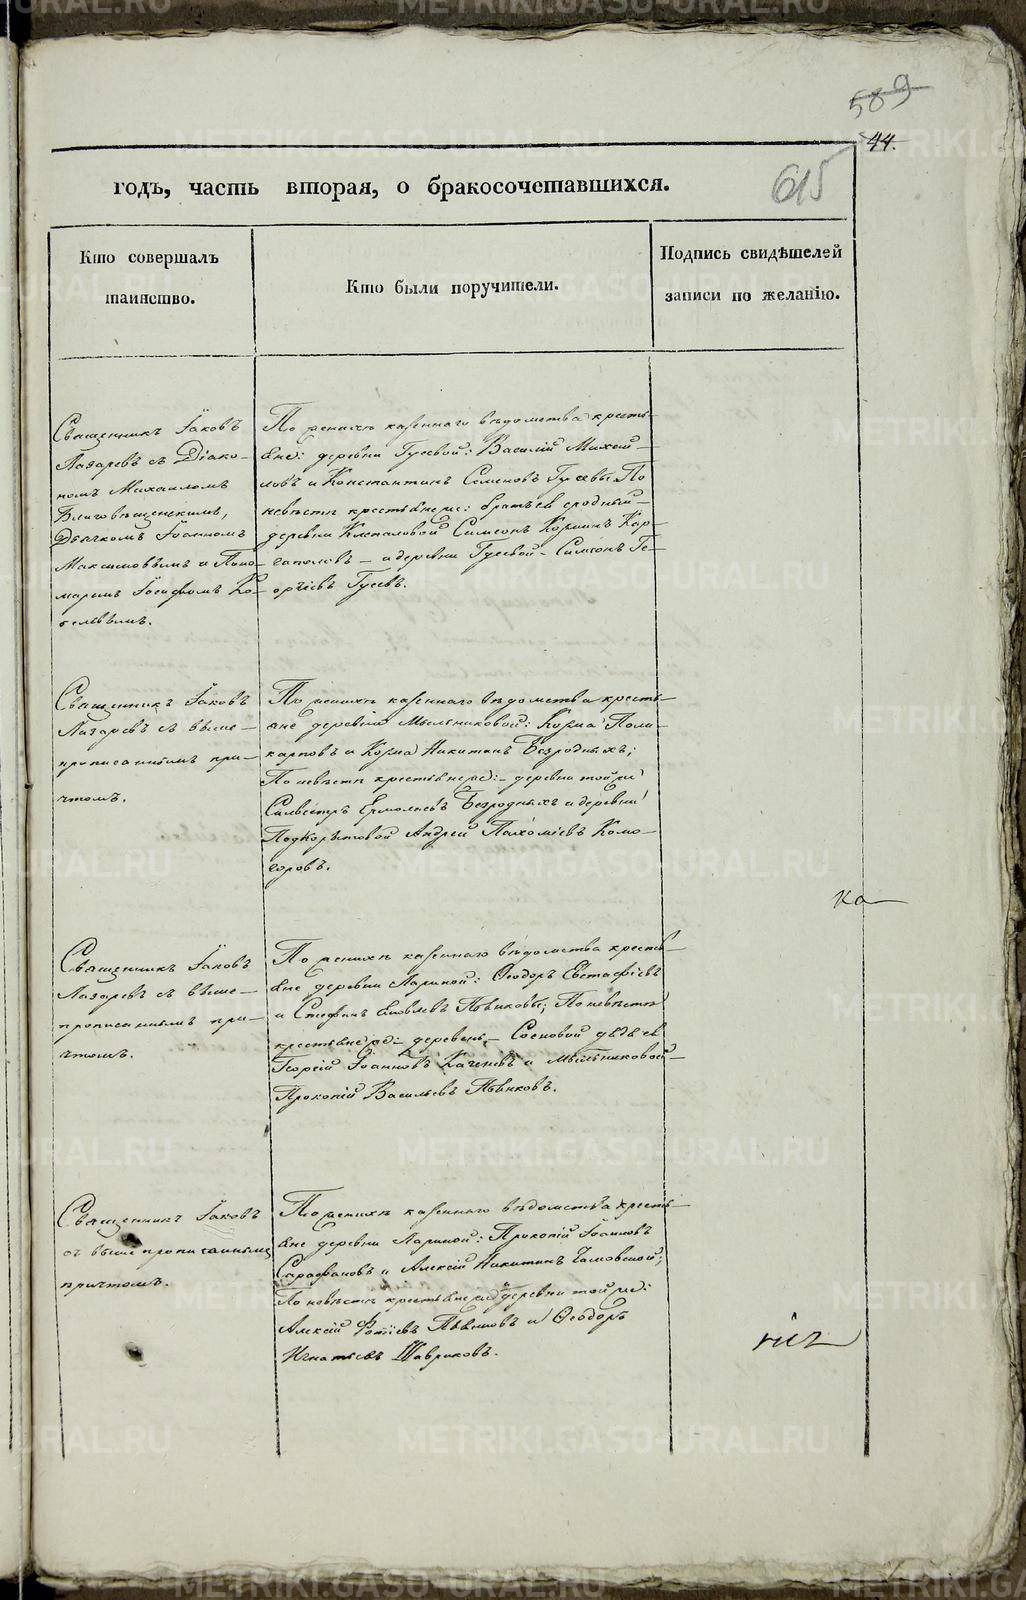 589
44.
615
годъ, часть вторая, о бракосочетавшихся.
Кто совершалъ
таинство.
Кто были поручители.
Подпись свидѣтелей
записи по желанію.
Священникъ Іаковъ
Лазаревъ съ Діако-
номъ Михаиломъ
Благовѣщенскимъ,
Дьячкомъ Іоанномъ
Максимовымъ и Поно-
маремъ Іосифомъ Ко-
По женихѣ казеннаго вѣдомства кресть-
яне: деревни Гусевой: Василій Михай-
ловъ и Константинъ Семеновъ Гусевы. По
невѣстѣ крестьяне же: братъ ея сродный
деревни Симеонъ Козминъ Кар-
гаполовъ – а деревни Гусевой – Симіонъ Ге-
оргіевъ Гусевъ.
Священникъ Іаковъ
Лазаревъ съ выше-
прописаннымъ при-
чтомъ.
По женихѣ казеннаго вѣдомства кресть-
яне деревни Мыльниковой: Козма Поли-
карповъ и Козма Никитинъ Безродныхъ;
По невѣстѣ крестьяне же: – деревни той же
Сильвестръ Ермолаевъ Безродныхъ и деревни
Подкорытовой Андрей Пахоміевъ Комо-
горовъ.
ка
Священникъ Іаковъ
Лазаревъ съ выше-
прописаннымъ при-
чтомъ.
По женихѣ казеннаго вѣдомства кресть-
яне деревни Лариной: Ѳеодоръ Евстафіевъ
и Стефанъ Яковлевъ Пьянковы; По невѣстѣ
крестьяне же: деревень, – Сосновой дядя ея
Георгій Іоанновъ и Мыльниковой –
Прокопій Васильевъ Пьянковъ.
Священникъ Іаковъ
съ вышепрописаннымъ
причтомъ.
По женихѣ казеннаго вѣдомства кресть-
яне деревни Лариной: Прокопій Іоанновъ
Сарафановъ и Алексій Никитинъ
По невѣстѣ крестьяне же деревни той же:
Алексій Фотіевъ Пьянковъ и Ѳеодоръ
Игнатьевъ Шавриковъ.
METRIKI.GASO-URAL.RU